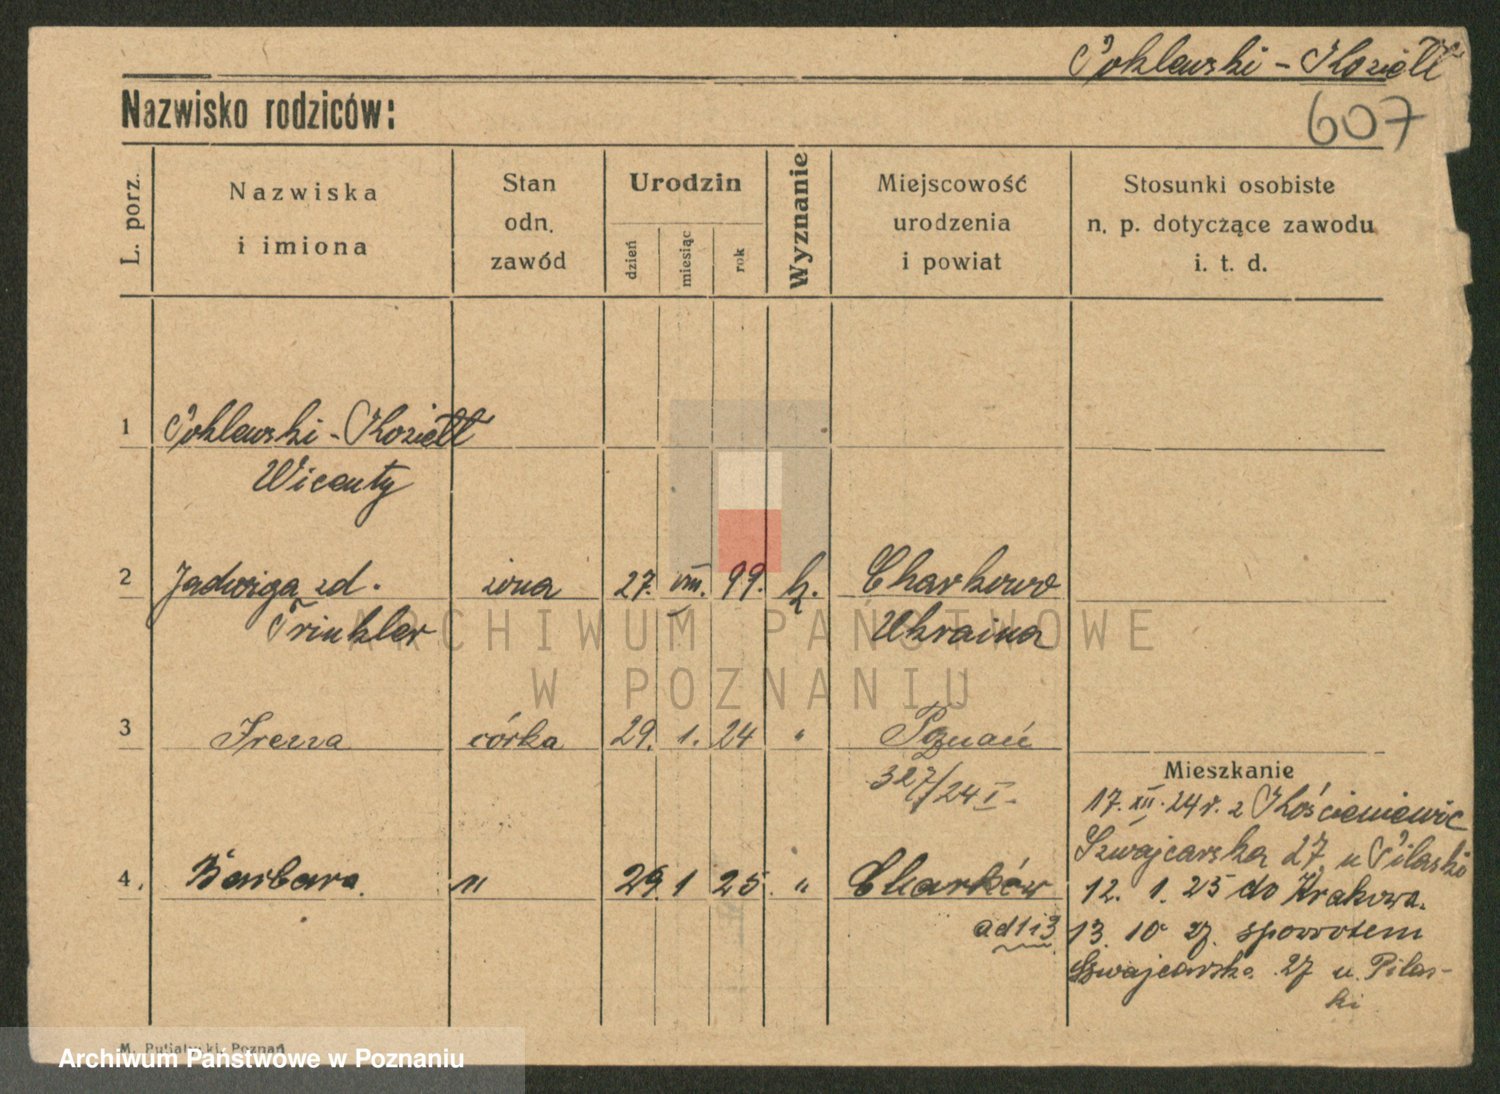 Poklewski - Koziełł
607
Nazwisko rodziców:
L. porz.
Nazwiska
i imiona
Stan
odn.
zawód
Urodzin
dzień
miesiąc
rok
Wyznanie
Miejscowość
urodzenia
i powiat
Stosunki osobiste
n. p. dotyczące zawodu
i. t. d.
1 Poklewski - Koziełł
Wicenty
2 Jadwiga zd. żona 27. VIII. 99. k. Charkowo
Trinkler Ukraina
3 Irena córka 29. 1. 24 " Poznań
327/24 I.
4. Barbara " 29. 1 25 " Charków
ad 1 i 3
Mieszkanie
17. XII. 24 r. z
Szwajcarska 27 u Pilaski
12. 1. 25 do Krakowa.
13. 10 27. spowrotem
Szwajcarska 27 u. Pilas-
ki
ARCHIWUM PAŃSTWOWE
W POZNANIU
M. Putiatycki, Poznań
Archiwum Państwowe w Poznaniu